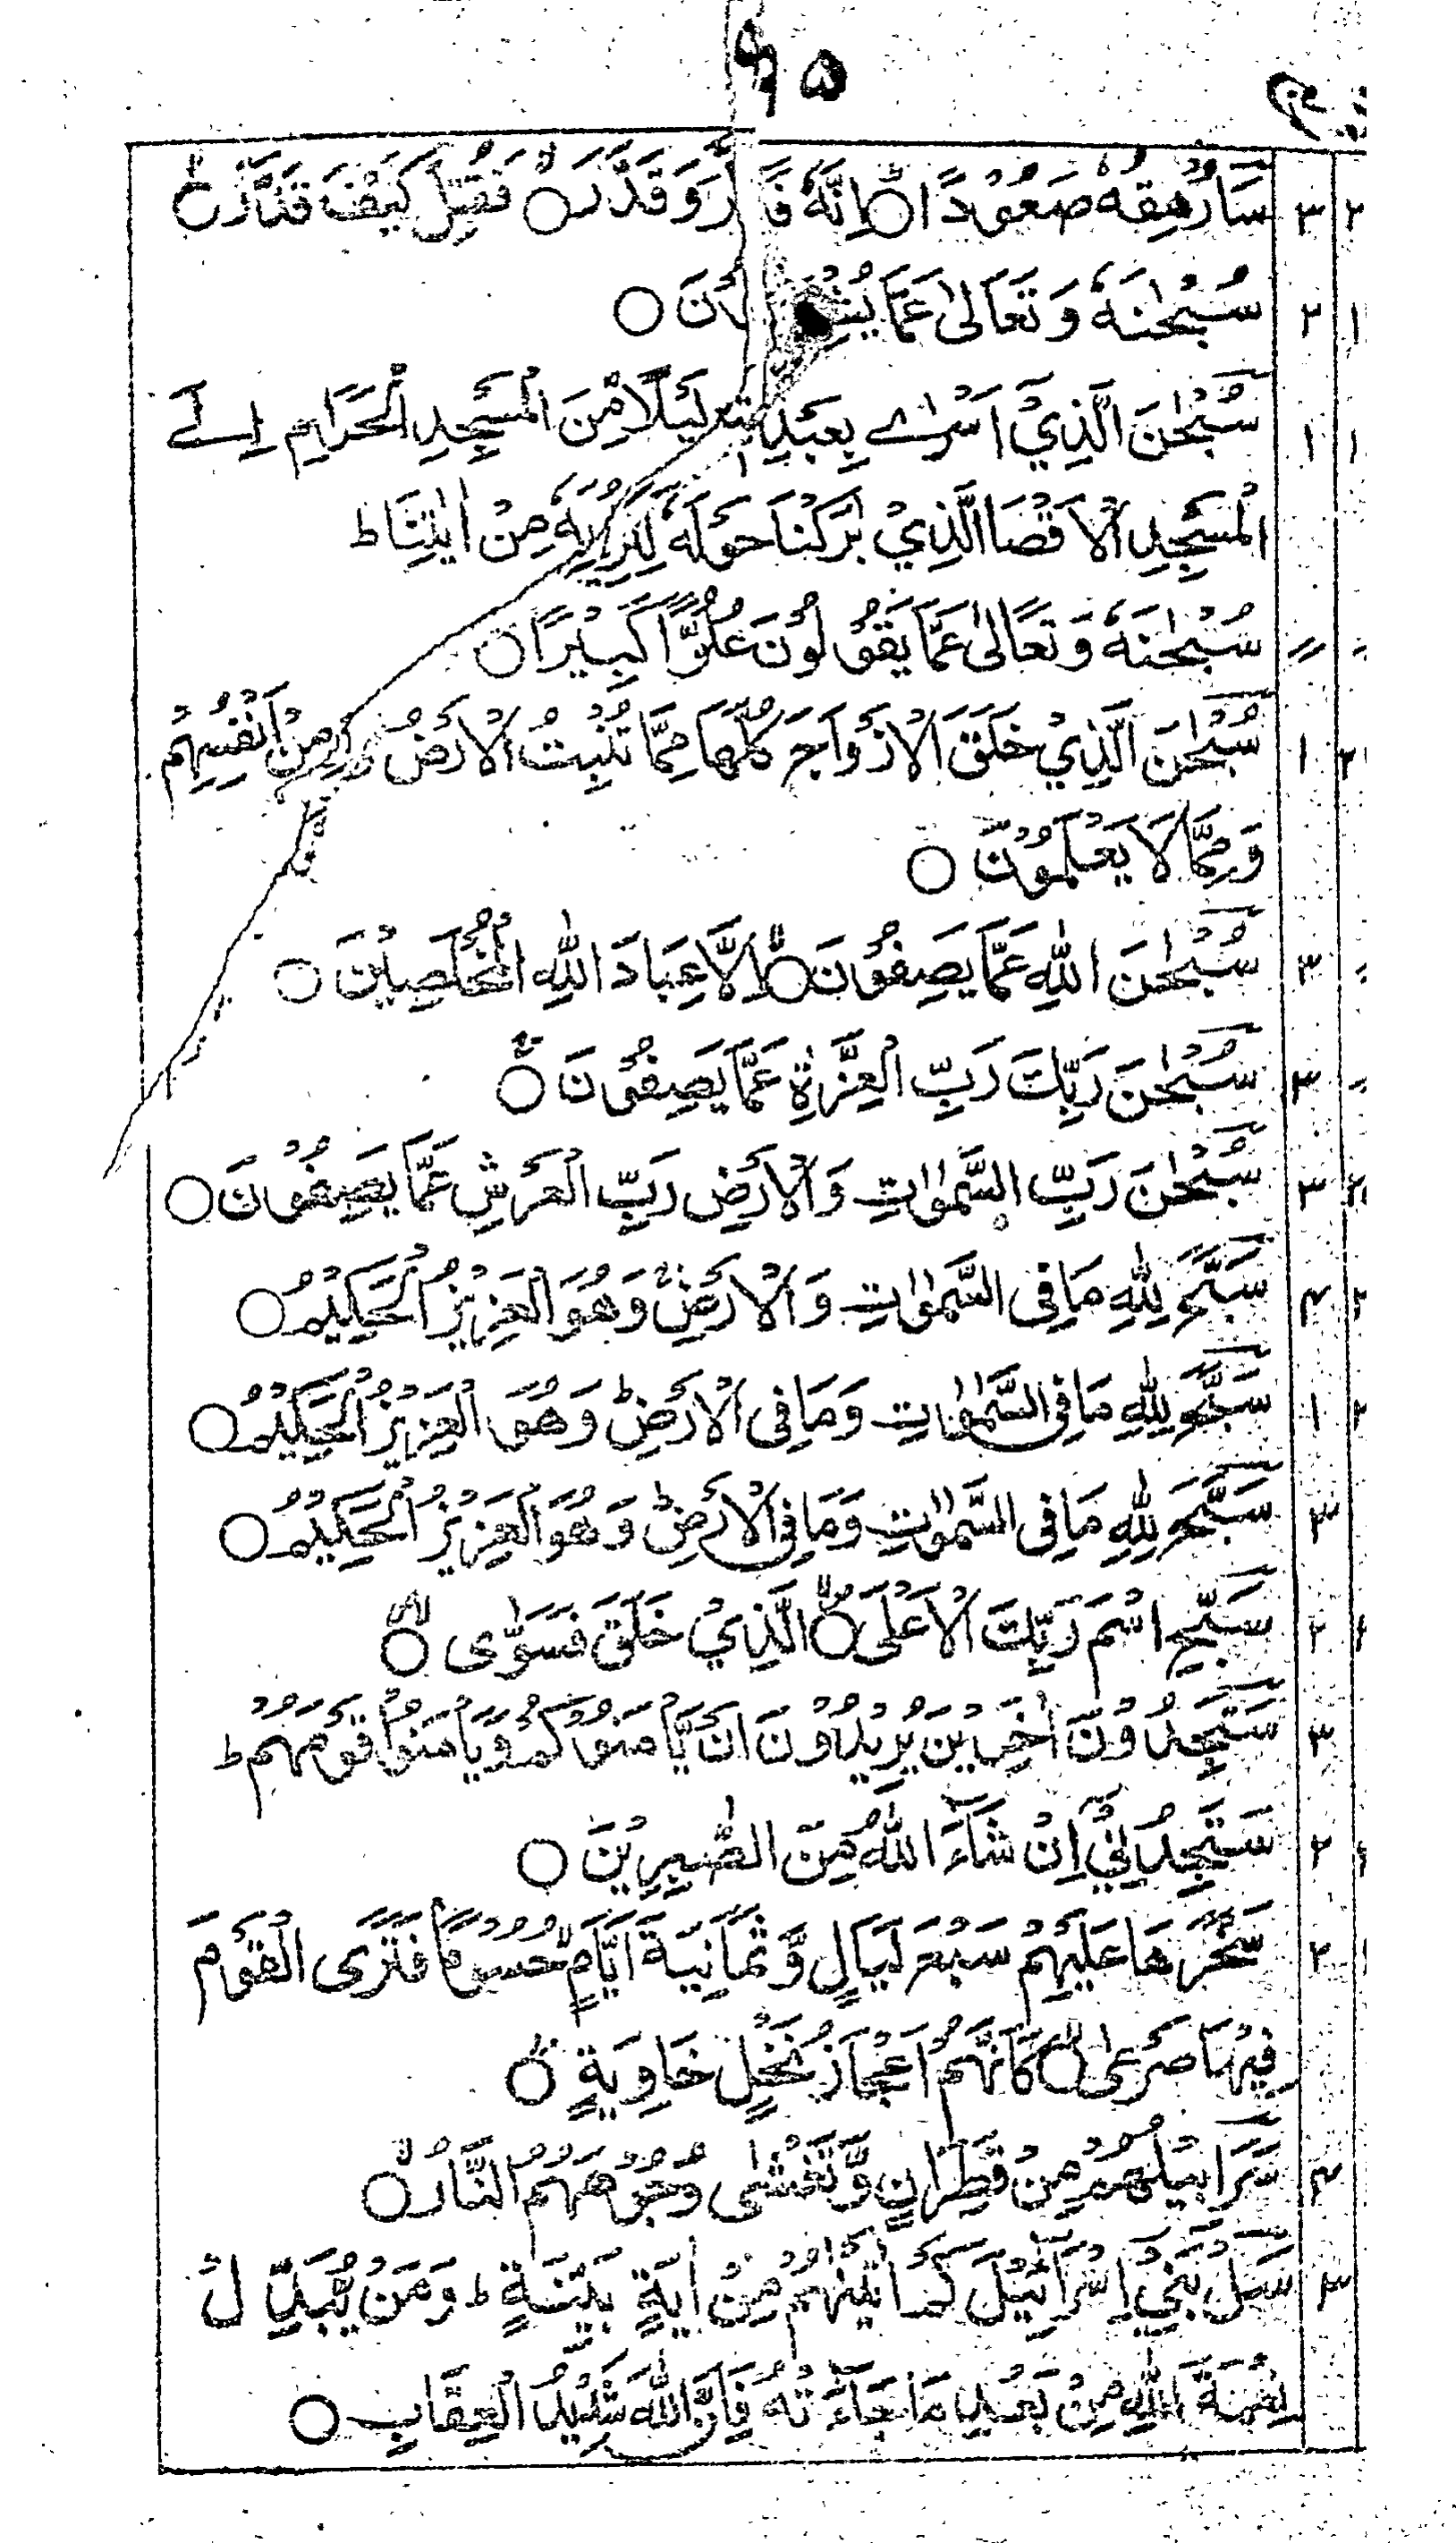 سَاُرْهِقُهٗ صَعُوْدًا ۝ اِنَّهٗ فَكَّرَ وَقَدَّرَ ۝ فَقُتِلَ كَيْفَ قَدَّرَ ۝ ٣
سُبْحٰنَهٗ وَتَعَالٰى عَمَّا يُشْرِكُوْنَ ۝ ٢
سُبْحٰنَ الَّذِيْ اَسْرٰے بِعَبْدِهٖ لَيْلًا مِّنَ الْمَسْجِدِ الْحَرَامِ اِلَے ١
الْمَسْجِدِ الْاَقْصَا الَّذِيْ بٰرَكْنَا حَوْلَهٗ لِنُرِيَهٗ مِنْ اٰيٰتِنَا ط
سُبْحٰنَهٗ وَتَعَالٰى عَمَّا يَقُوْلُوْنَ عُلُوًّا كَبِيْرًا ۝ ״
سُبْحٰنَ الَّذِيْ خَلَقَ الْاَزْوَاجَ كُلَّهَا مِمَّا تُنْۢبِتُ الْاَرْضُ وَمِنْ اَنْفُسِهِمْ ١
وَمِمَّا لَا يَعْلَمُوْنَ ۝
سُبْحٰنَ اللّٰهِ عَمَّا يَصِفُوْنَ ۝ اِلَّا عِبَادَ اللّٰهِ الْمُخْلَصِيْنَ ۝ ٣
سُبْحٰنَ رَبِّكَ رَبِّ الْعِزَّةِ عَمَّا يَصِفُوْنَ ۝ ٣
سُبْحٰنَ رَبِّ السَّمٰوٰتِ وَالْاَرْضِ رَبِّ الْعَرْشِ عَمَّا يَصِفُوْنَ ۝ ٣
سَبَّحَ لِلّٰهِ مَا فِى السَّمٰوٰتِ وَالْاَرْضِ وَهُوَ الْعَزِيْزُ الْحَكِيْمُ ۝ ٣
سَبَّحَ لِلّٰهِ مَا فِى السَّمٰوٰتِ وَمَا فِى الْاَرْضِ وَهُوَ الْعَزِيْزُ الْحَكِيْمُ ۝ ١
سَبَّحَ لِلّٰهِ مَا فِى السَّمٰوٰتِ وَمَا فِى الْاَرْضِ وَهُوَ الْعَزِيْزُ الْحَكِيْمُ ۝ ٣
سَبِّحِ اسْمَ رَبِّكَ الْاَعْلَى ۝ الَّذِيْ خَلَقَ فَسَوّٰى ۝ ٢
سَتَجِدُوْنَ اٰخَرِيْنَ يُرِيْدُوْنَ اَنْ يَّاْمَنُوْكُمْ وَيَاْمَنُوْا قَوْمَهُمْ ط ٣
سَتَجِدُنِيْٓ اِنْ شَآءَ اللّٰهُ مِنَ الصّٰبِرِيْنَ ۝ ٢
سَخَّرَهَا عَلَيْهِمْ سَبْعَ لَيَالٍ وَّثَمٰنِيَةَ اَيَّامٍ حُسُوْمًا فَتَرَى الْقَوْمَ ٢
فِيْهَا صَرْعٰى كَاَنَّهُمْ اَعْجَازُ نَخْلٍ خَاوِيَةٍ ۝
سَرَابِيْلُهُمْ مِّنْ قَطِرَانٍ وَّتَغْشٰى وُجُوْهَهُمُ النَّارُ ۝
سَلْ بَنِيْٓ اِسْرَآئِيْلَ كَمْ اٰتَيْنٰهُمْ مِّنْ اٰيَةٍ بَيِّنَةٍ ط وَمَنْ يُّبَدِّلْ
نِعْمَةَ اللّٰهِ مِنْۢ بَعْدِ مَا جَآءَتْهُ فَاِنَّ اللّٰهَ شَدِيْدُ الْعِقَابِ ۝